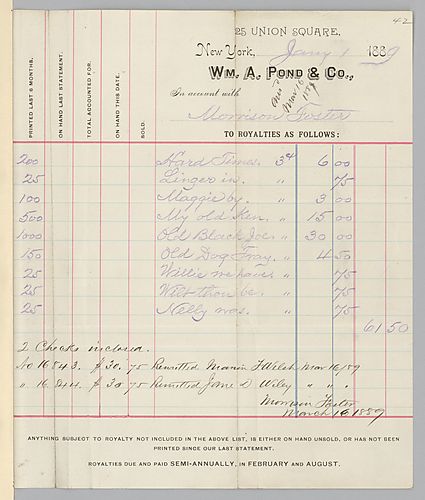 42
25 UNION SQUARE,
New York, Jany 1 1889
WM. A. POND & CO.,
In account with
Mar 16
1889
Morrison Foster
TO ROYALTIES AS FOLLOWS:
PRINTED LAST 6 MONTHS.
ON HAND LAST STATEMENT.
TOTAL ACCOUNTED FOR.
ON HAND THIS DATE.
SOLD.
200 Hard Times. 3¢ 6 00
25 Linger in. " 75
100 Maggie by. " 3 00
500 My old Ken. " 15 00
1000 Old Black Joe " 30 00
150 Old Dog Tray. " 4 50
25 Willie we have " 75
25 Wilt thou be. " 75
25 Nelly was. " 75
61 50
2 Checks inclosed.
No 16843. $30.75 Remitted Marion F Welsh Mar 16/89
" 16844. $30 75 Remitted Jane D Wiley " " "
Morrison Foster
March 16 1889
ANYTHING SUBJECT TO ROYALTY NOT INCLUDED IN THE ABOVE LIST, IS EITHER ON HAND UNSOLD, OR HAS NOT BEEN
PRINTED SINCE OUR LAST STATEMENT.
ROYALTIES DUE AND PAID SEMI-ANNUALLY, IN FEBRUARY AND AUGUST.